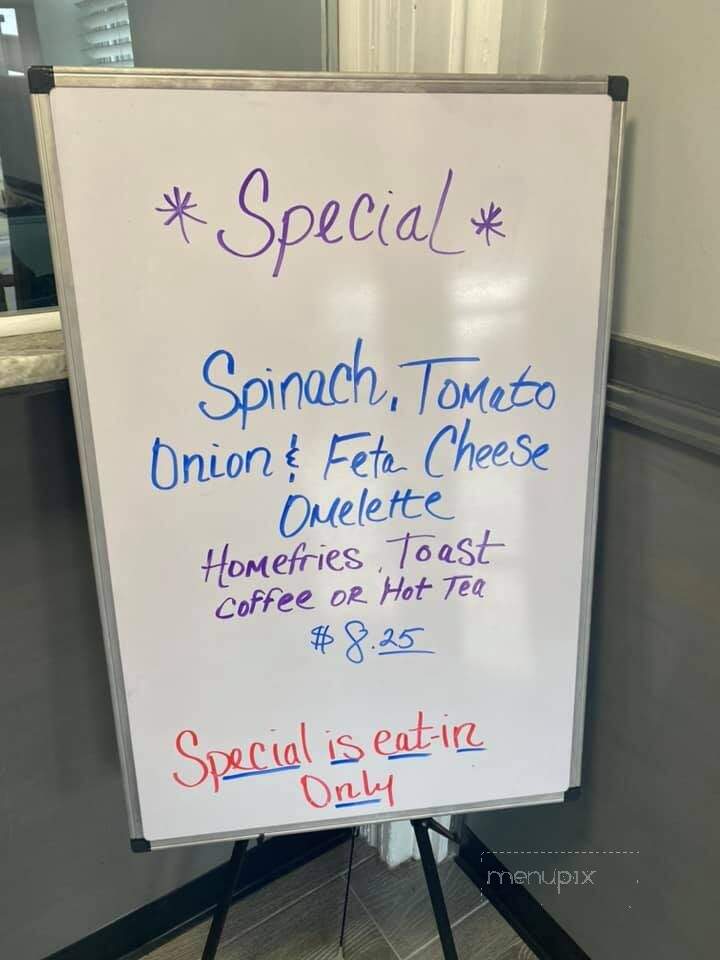 *Special*
Spinach, Tomato
Onion & Feta Cheese
Omelette
Homefries, Toast
Coffee OR Hot Tea
$8.25
Special is eat-in
Only
menupix